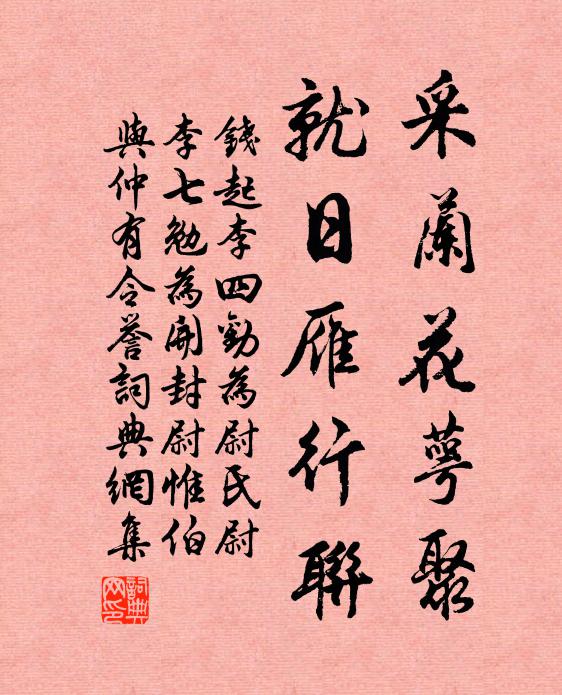 采蘭花萼聚
就日雁行聯
錢起李四勸為尉氏尉
李七勉為開封尉惟伯
與仲有令譽詞典網集
詞典
网印